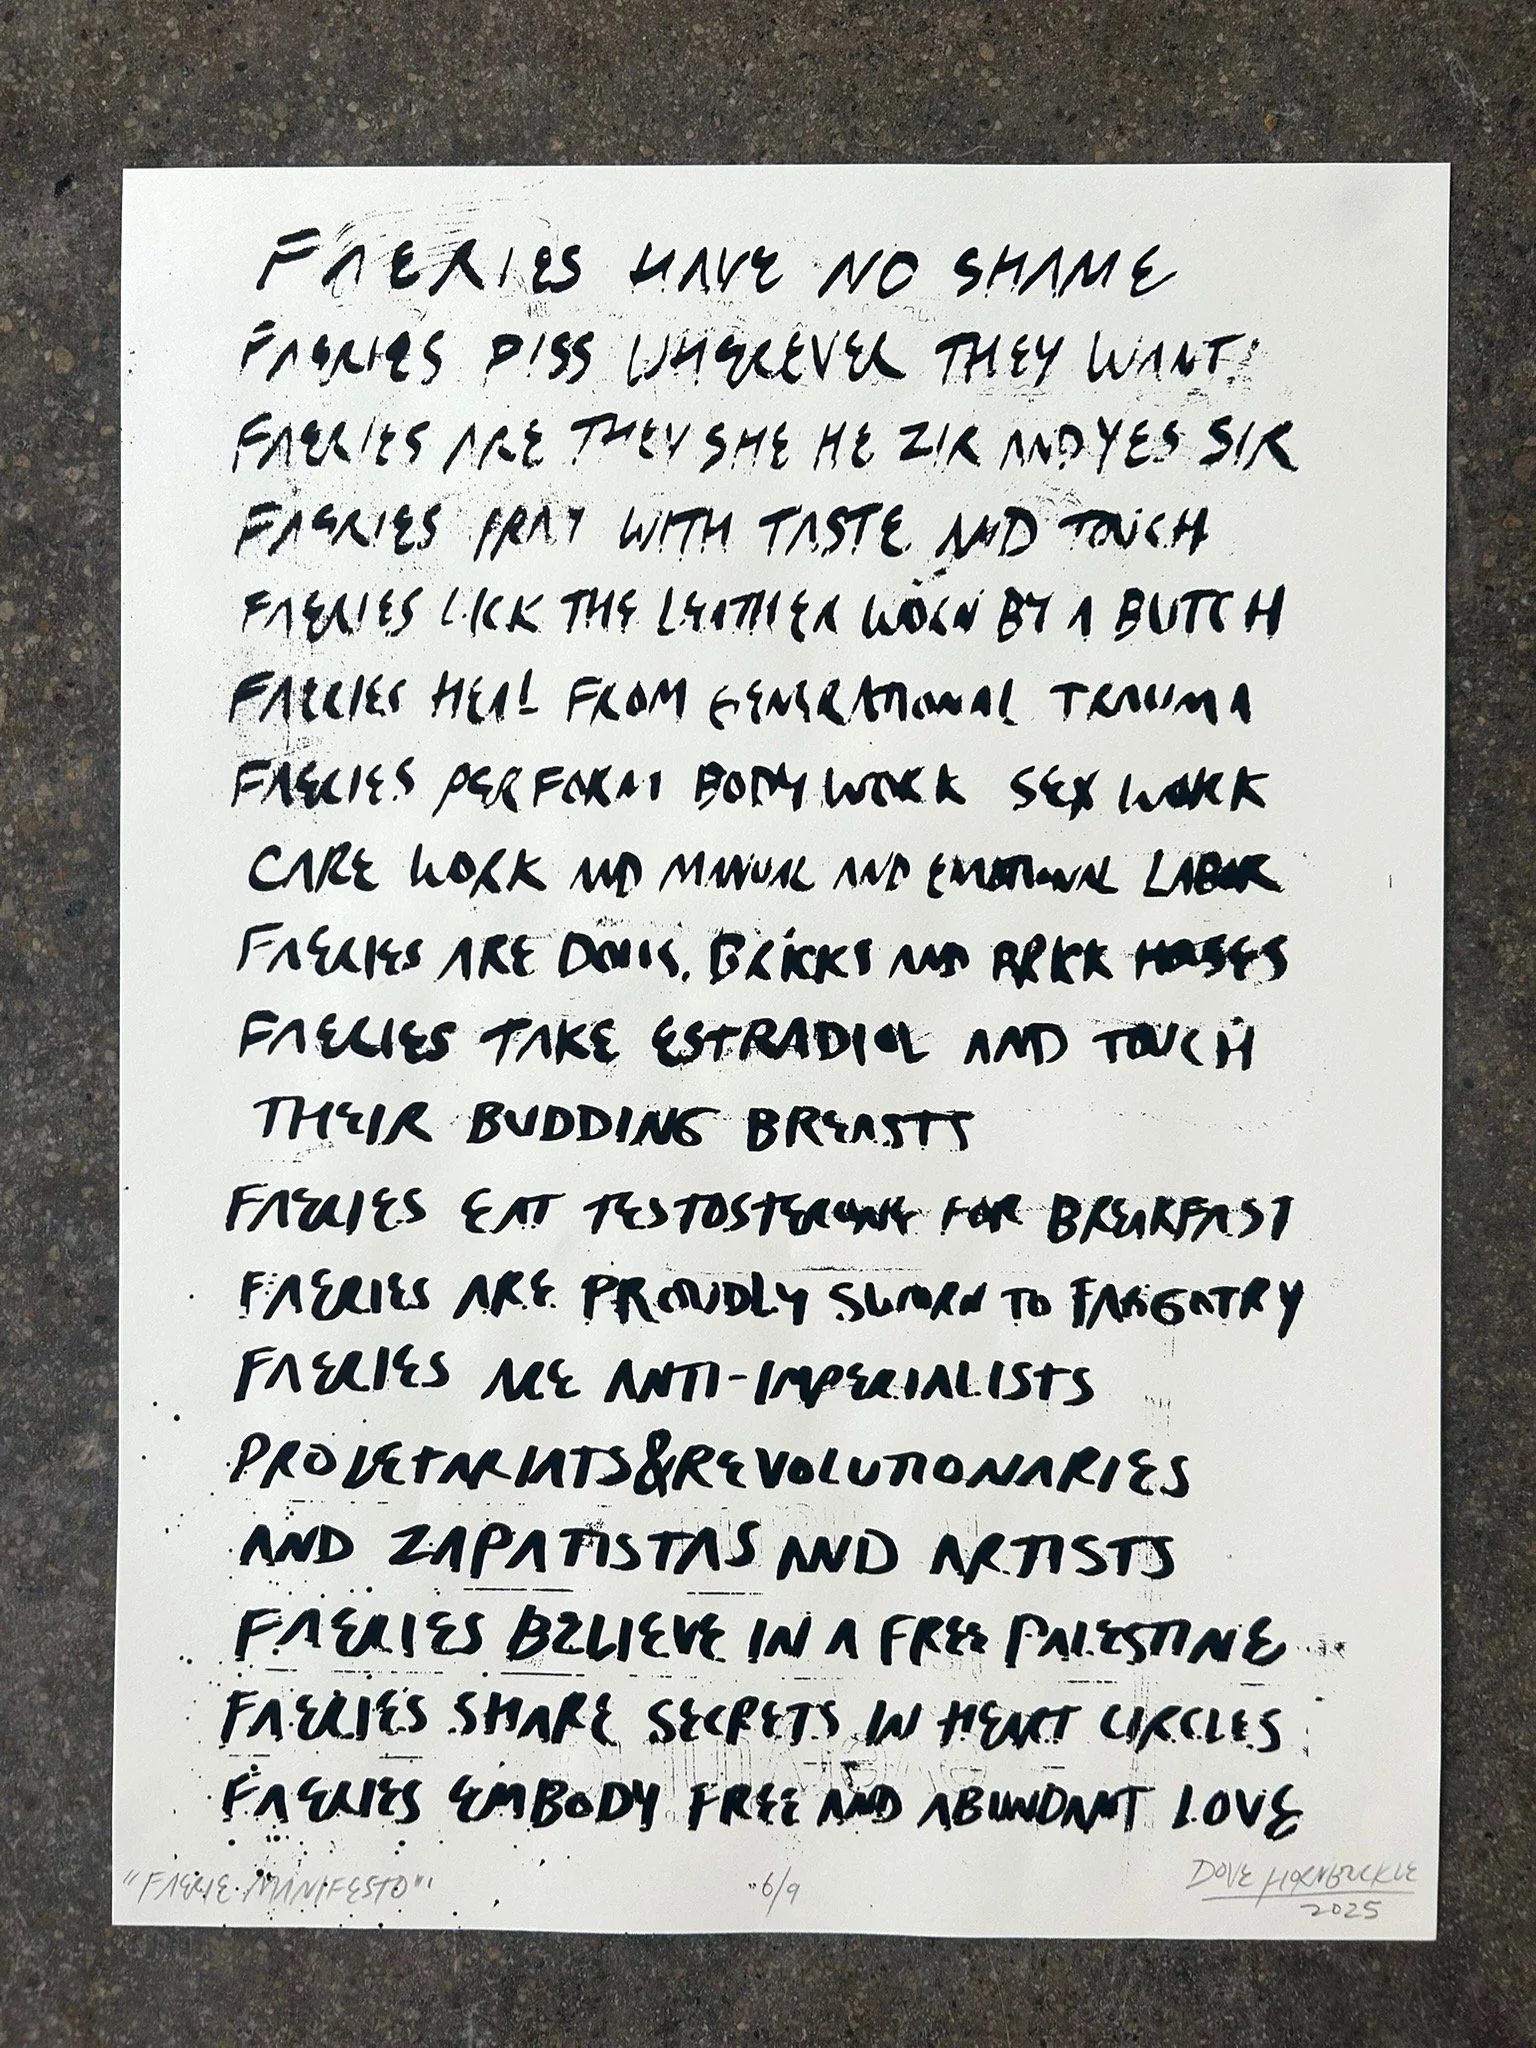 FAERIES HAVE NO SHAME
FAERIES PISS WHEREVER THEY WANT
FAERIES ARE THEY SHE HE ZIR AND YES SIR
FAERIES PRAY WITH TASTE AND TOUCH
FAERIES LICK THE LEATHER WORN BY A BUTCH
FAERIES HEAL FROM GENERATIONAL TRAUMA
FAERIES PERFORM BODY WORK SEX WORK
CARE WORK AND MANUAL AND EMOTIONAL LABOR
FAERIES ARE DOLLS, BRICKS AND BRICK HOUSES
FAERIES TAKE ESTRADIOL AND TOUCH
THEIR BUDDING BREASTS
FAERIES EAT TESTOSTERONE FOR BREAKFAST
FAERIES ARE PROUDLY SWORN TO FAGGOTRY
FAERIES ARE ANTI-IMPERIALISTS
PROLETARIATS&REVOLUTIONARIES
AND ZAPATISTAS AND ARTISTS
FAERIES BELIEVE IN A FREE PALESTINE
FAERIES SHARE SECRETS IN HEART CIRCLES
FAERIES EMBODY FREE AND ABUNDANT LOVE
"FAERIE MANIFESTO" 6/9 DOVE HORNBUCKLE
2025